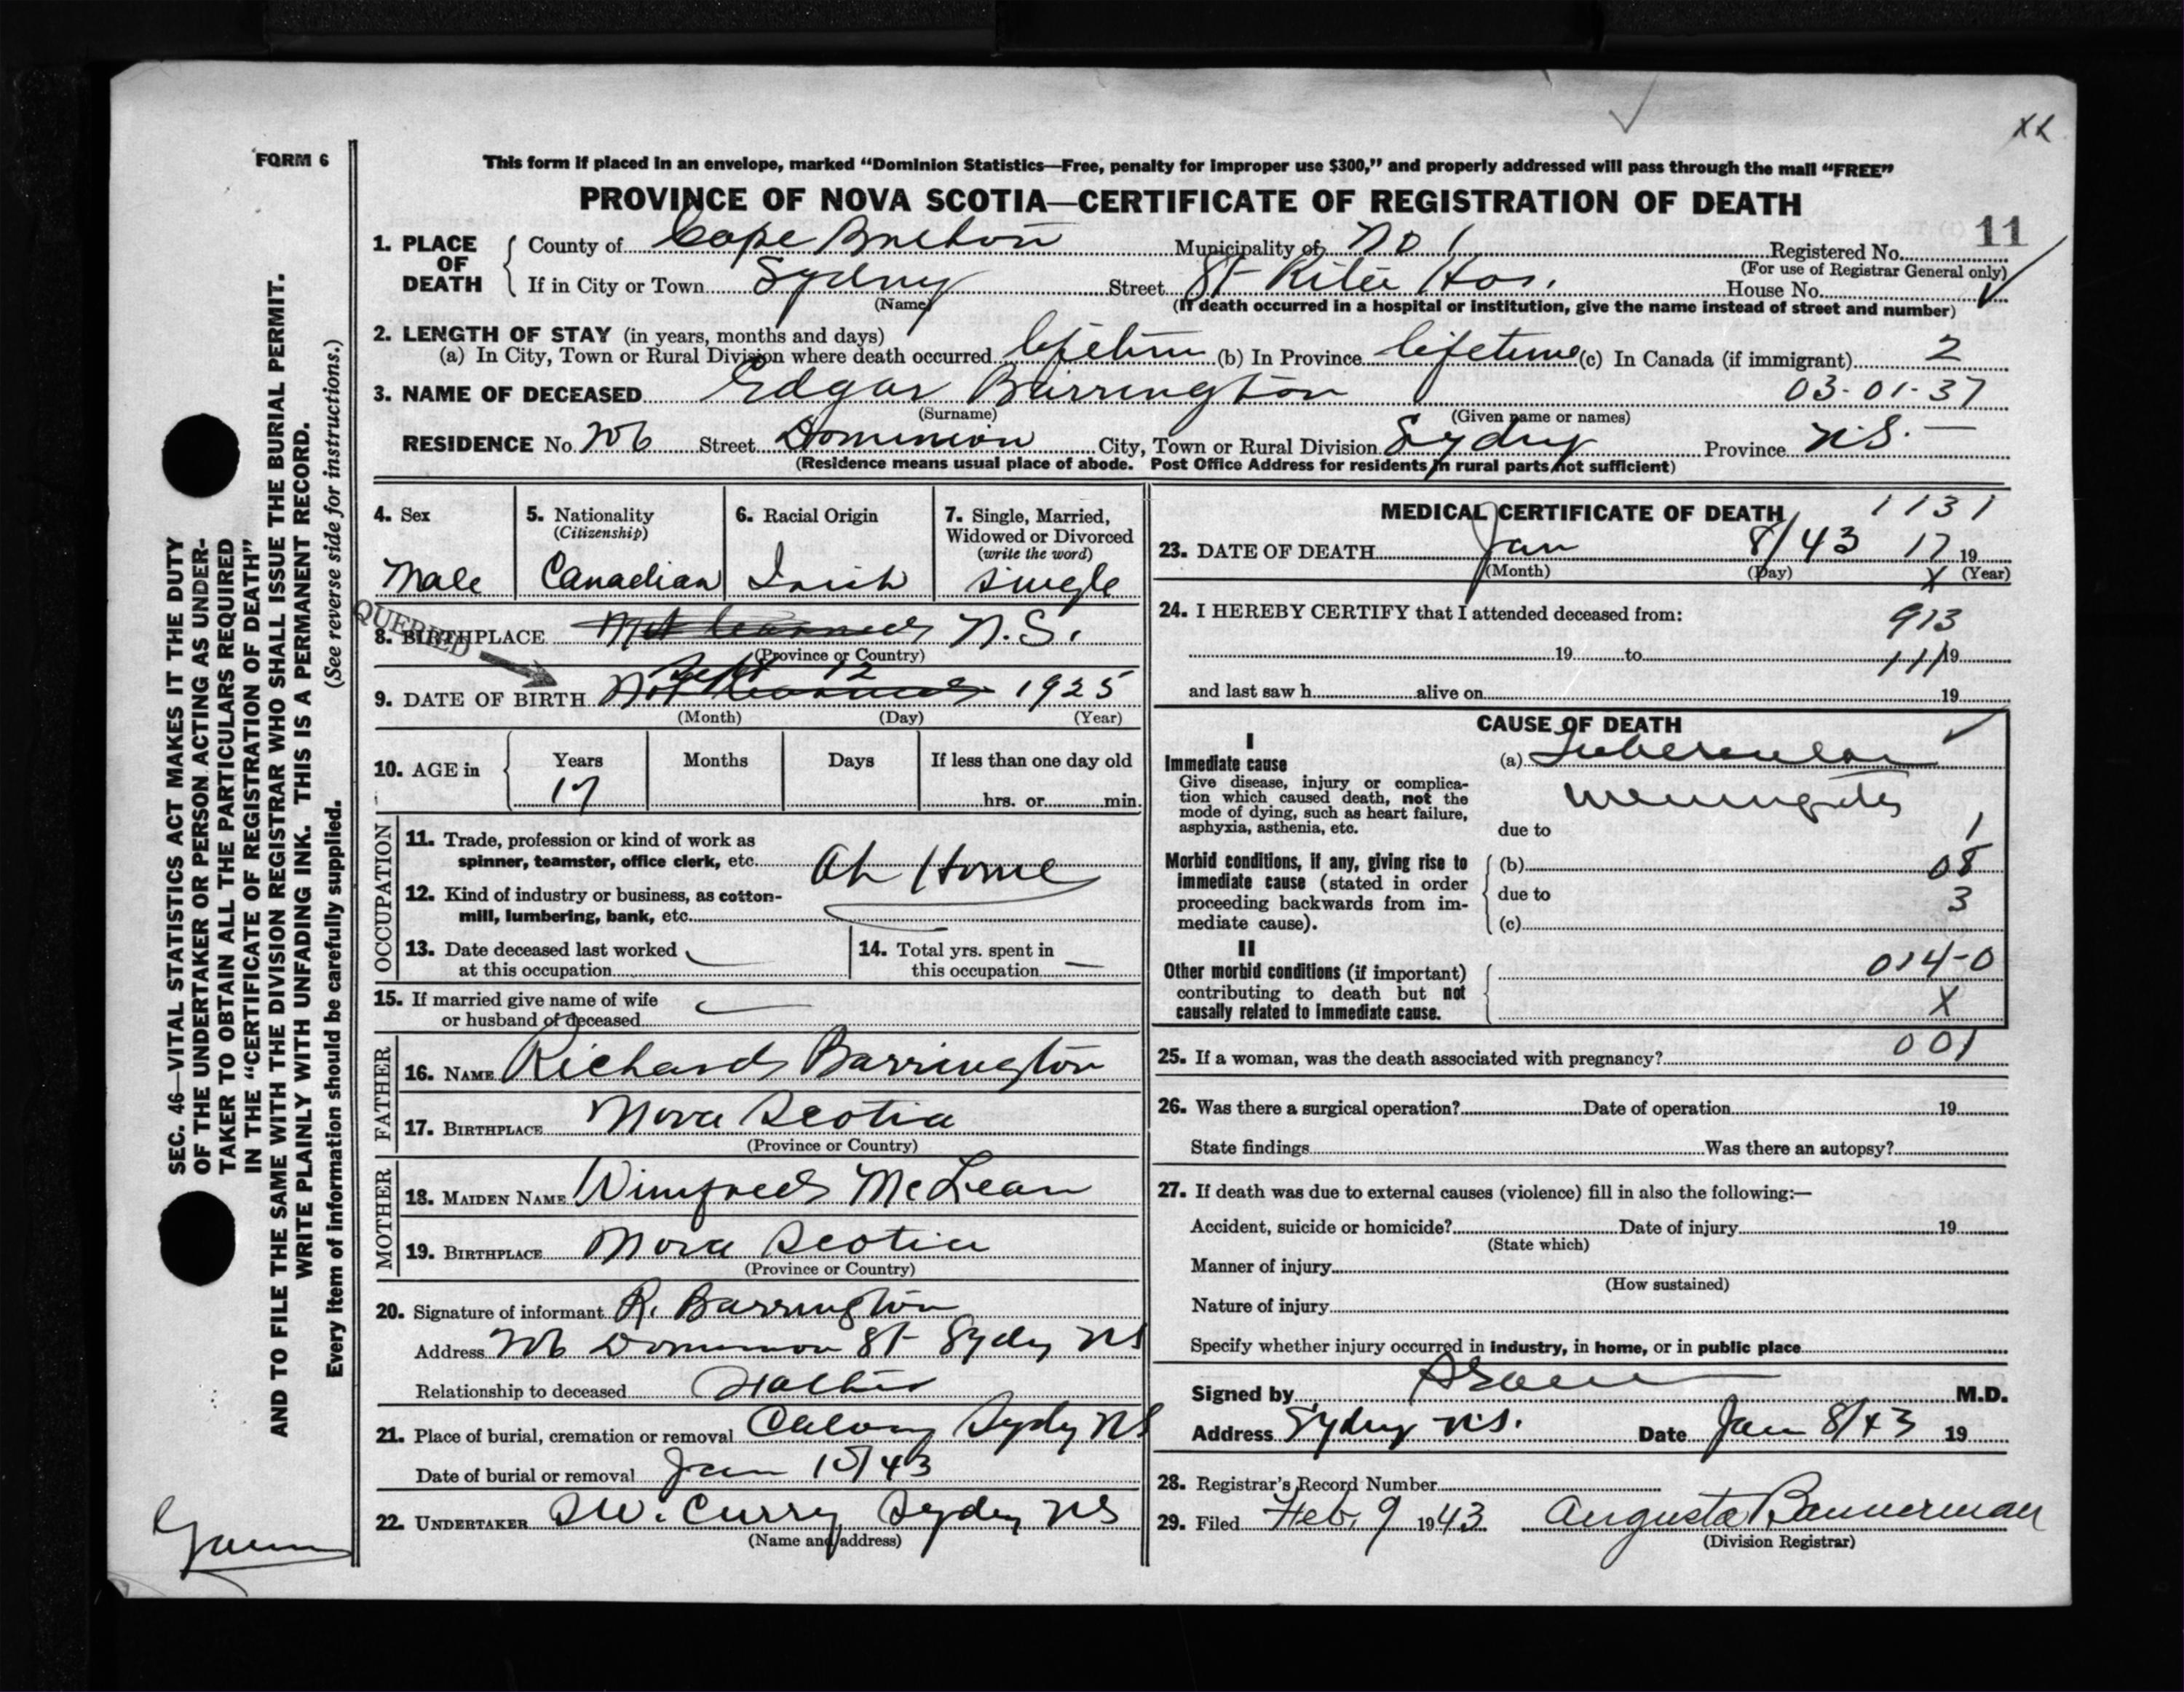 XL
FORM 6
This form if placed in an envelope, marked “Dominion Statistics—Free, penalty for improper use $300,” and properly addressed will pass through the mail “FREE”
PROVINCE OF NOVA SCOTIA—CERTIFICATE OF REGISTRATION OF DEATH
11
1. PLACE OF DEATH
County of Cape Breton Municipality of No 1 Registered No.
(For use of Registrar General only)
If in City or Town Sydney Street St Rita Hos. House No.
(Name) (If death occurred in a hospital or institution, give the name instead of street and number)
2. LENGTH OF STAY (in years, months and days)
(a) In City, Town or Rural Division where death occurred lifetime (b) In Province lifetime (c) In Canada (if immigrant) 2
3. NAME OF DECEASED Edgar Barrington 03-01-37
(Surname) (Given name or names)
RESIDENCE No. Street Dominion City, Town or Rural Division Sydney Province N.S.
(Residence means usual place of abode. Post Office Address for residents in rural parts not sufficient)
4. Sex
Male
5. Nationality
(Citizenship)
Canadian
6. Racial Origin
Irish
7. Single, Married,
Widowed or Divorced
(write the word)
single
QUERIED
8. BIRTHPLACE N.S.
(Province or Country)
Sept 12
9. DATE OF BIRTH Not learned 1925
(Month) (Day) (Year)
10. AGE in
Years Months Days If less than one day old
17 hrs. or min.
OCCUPATION
11. Trade, profession or kind of work as
spinner, teamster, office clerk, etc. At Home
12. Kind of industry or business, as cotton-
mill, lumbering, bank, etc.
13. Date deceased last worked
at this occupation
14. Total yrs. spent in
this occupation —
15. If married give name of wife
or husband of deceased
FATHER
16. NAME Richard Barrington
17. BIRTHPLACE Nova Scotia
(Province or Country)
MOTHER
18. MAIDEN NAME Winifred McLean
19. BIRTHPLACE Nova Scotia
(Province or Country)
20. Signature of informant R. Barrington
Address Dominion St Sydney NS
Relationship to deceased Father
21. Place of burial, cremation or removal Calvary Sydney NS
Date of burial or removal Jan /43
22. UNDERTAKER Curry Sydney NS
(Name and address)
MEDICAL CERTIFICATE OF DEATH 1131
23. DATE OF DEATH Jan 8/43 17 19
(Month) (Day) X (Year)
24. I HEREBY CERTIFY that I attended deceased from: 913
19 to 111 19
and last saw h alive on 19
CAUSE OF DEATH
I
Immediate cause
Give disease, injury or complica-
tion which caused death, not the
mode of dying, such as heart failure,
asphyxia, asthenia, etc.
(a) Tubercular
meningitis
due to 1
Morbid conditions, if any, giving rise to
immediate cause (stated in order
proceeding backwards from im-
mediate cause).
(b) 08
due to 3
(c)
II
Other morbid conditions (if important)
contributing to death but not
causally related to immediate cause.
014-0
X
25. If a woman, was the death associated with pregnancy? 001
26. Was there a surgical operation? Date of operation 19
State findings Was there an autopsy?
27. If death was due to external causes (violence) fill in also the following:—
Accident, suicide or homicide? Date of injury 19
(State which)
Manner of injury
(How sustained)
Nature of injury
Specify whether injury occurred in industry, in home, or in public place
Signed by M.D.
Address Sydney N.S. Date Jan 8/43 19
28. Registrar's Record Number
29. Filed Feb. 9 1943 Augusta Bannerman
(Division Registrar)
SEC. 46—VITAL STATISTICS ACT MAKES IT THE DUTY
OF THE UNDERTAKER OR PERSON ACTING AS UNDER-
TAKER TO OBTAIN ALL THE PARTICULARS REQUIRED
IN THE “CERTIFICATE OF REGISTRATION OF DEATH”
AND TO FILE THE SAME WITH THE DIVISION REGISTRAR WHO SHALL ISSUE THE BURIAL PERMIT.
WRITE PLAINLY WITH UNFADING INK. THIS IS A PERMANENT RECORD.
Every item of information should be carefully supplied. (See reverse side for instructions.)